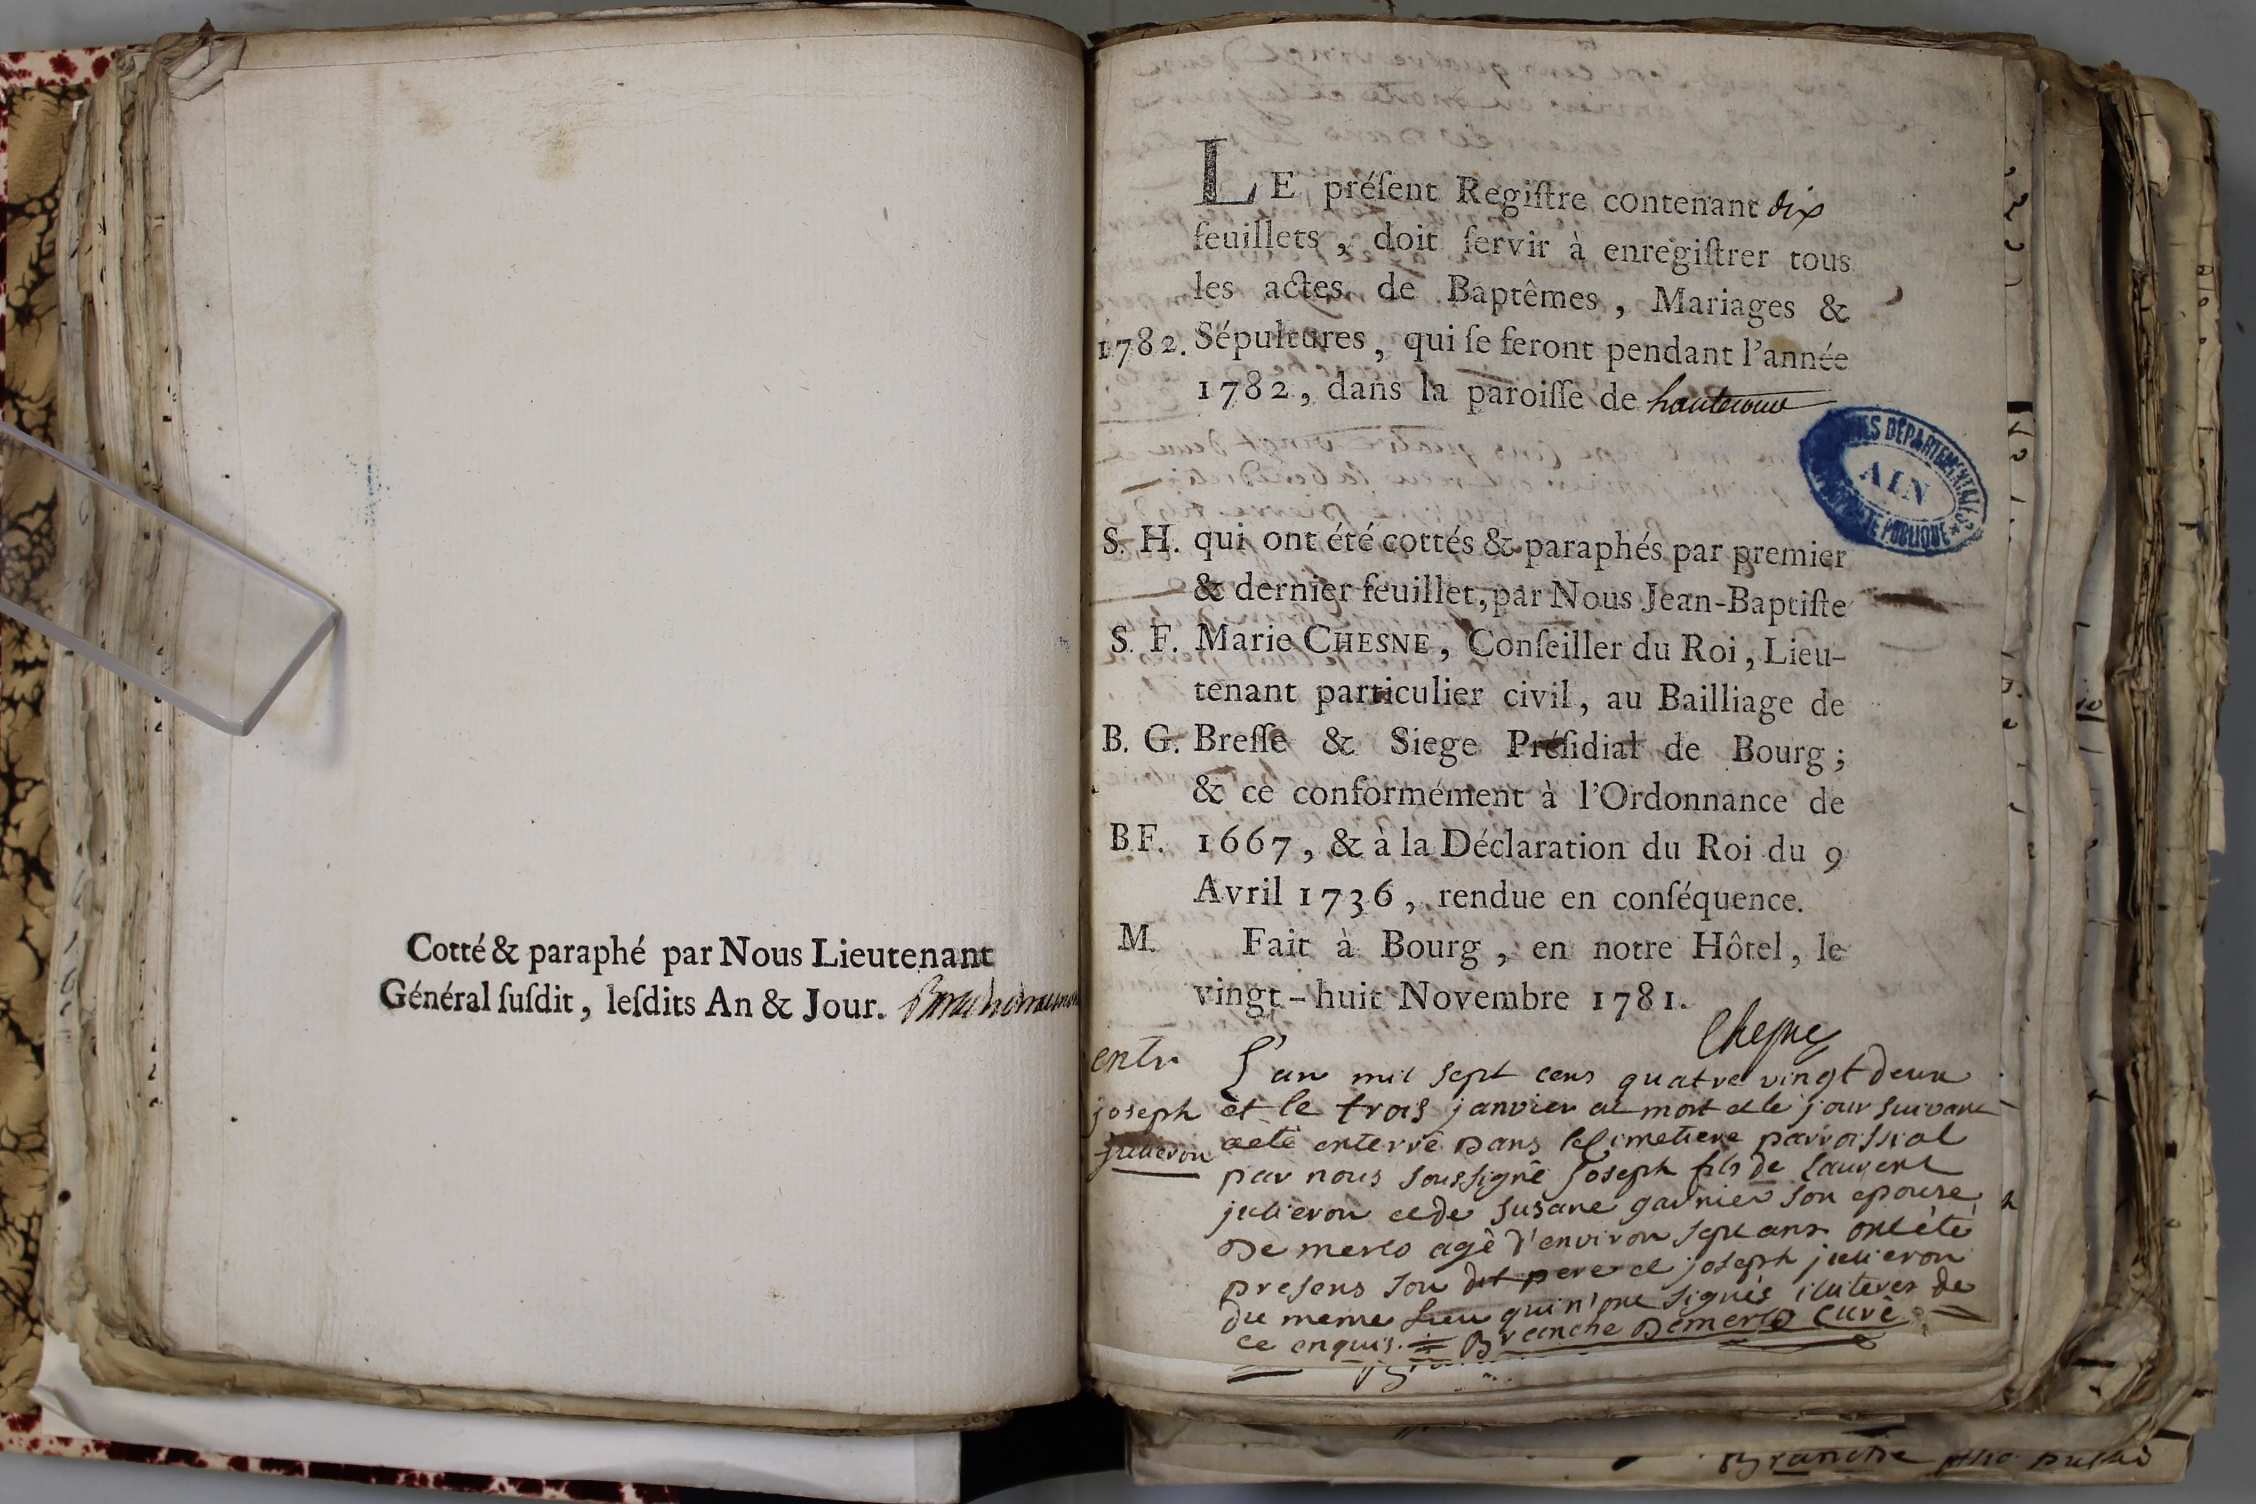 Cotté & paraphé par Nous Lieutenant
Général ſuſdit, leſdits An & Jour.
LE préſent Regiſtre contenant dix
feuillets, doit ſervir à enregiſtrer tous
les actes de Baptêmes, Mariages &
1782. Sépultures, qui ſe feront pendant l'année
1782, dans la paroiſſe de hautecour
ARCHIVES DÉPARTEMENTALES
AIN
PROPRIÉTÉ PUBLIQUE
S. H. qui ont été cottés & paraphés par premier
& dernier feuillet, par Nous Jean-Baptiſte
S. F. Marie CHESNE, Conſeiller du Roi, Lieu-
tenant particulier civil, au Bailliage de
B. G. Breſſe & Siege Préſidial de Bourg;
& ce conformément à l'Ordonnance de
B F. 1667, & à la Déclaration du Roi du 9
Avril 1736, rendue en conſéquence.
M. Fait à Bourg, en notre Hôtel, le
vingt-huit Novembre 1781.
Chesne
entr. L'an mil sept cens quatre vingt deux
joseph et le trois janvier at mort et le jour suivant
jullieron a eté enterré dans le Cimetiere parroissial
par nous soussigné joseph fils de laurent
jullieron et de susane garnier son epouse
De merlo agé d'environ sept ans ont été
presens son dit pere et joseph jullieron
du meme lieu qui n'ont signés illiteres de
ce enquis. Branche Demerlo Curé
Branche